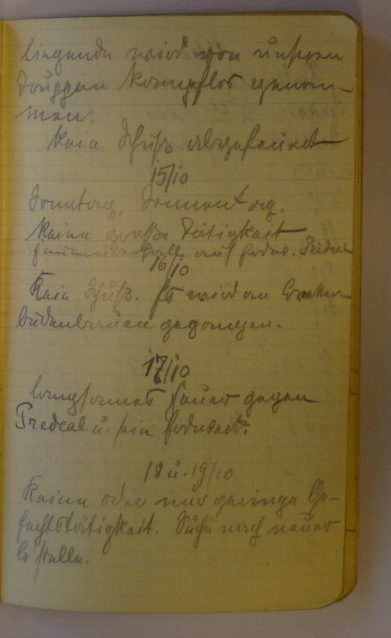 liegende wird von unseren
Truppen kampflos genom-
men.
Kein Schuß abgefeuert
15/10
Sonntag, Sonnentag.
Keine große Tätigkeit
auf Predeal
16/10
Kein Schuß. Es wird an
gegangen.
17/10
langsames Feuer gegen
Predeal u. sein
18 u. 19/10
Keine oder nur geringe Ge-
fechtstätigkeit. Suche nach neuer